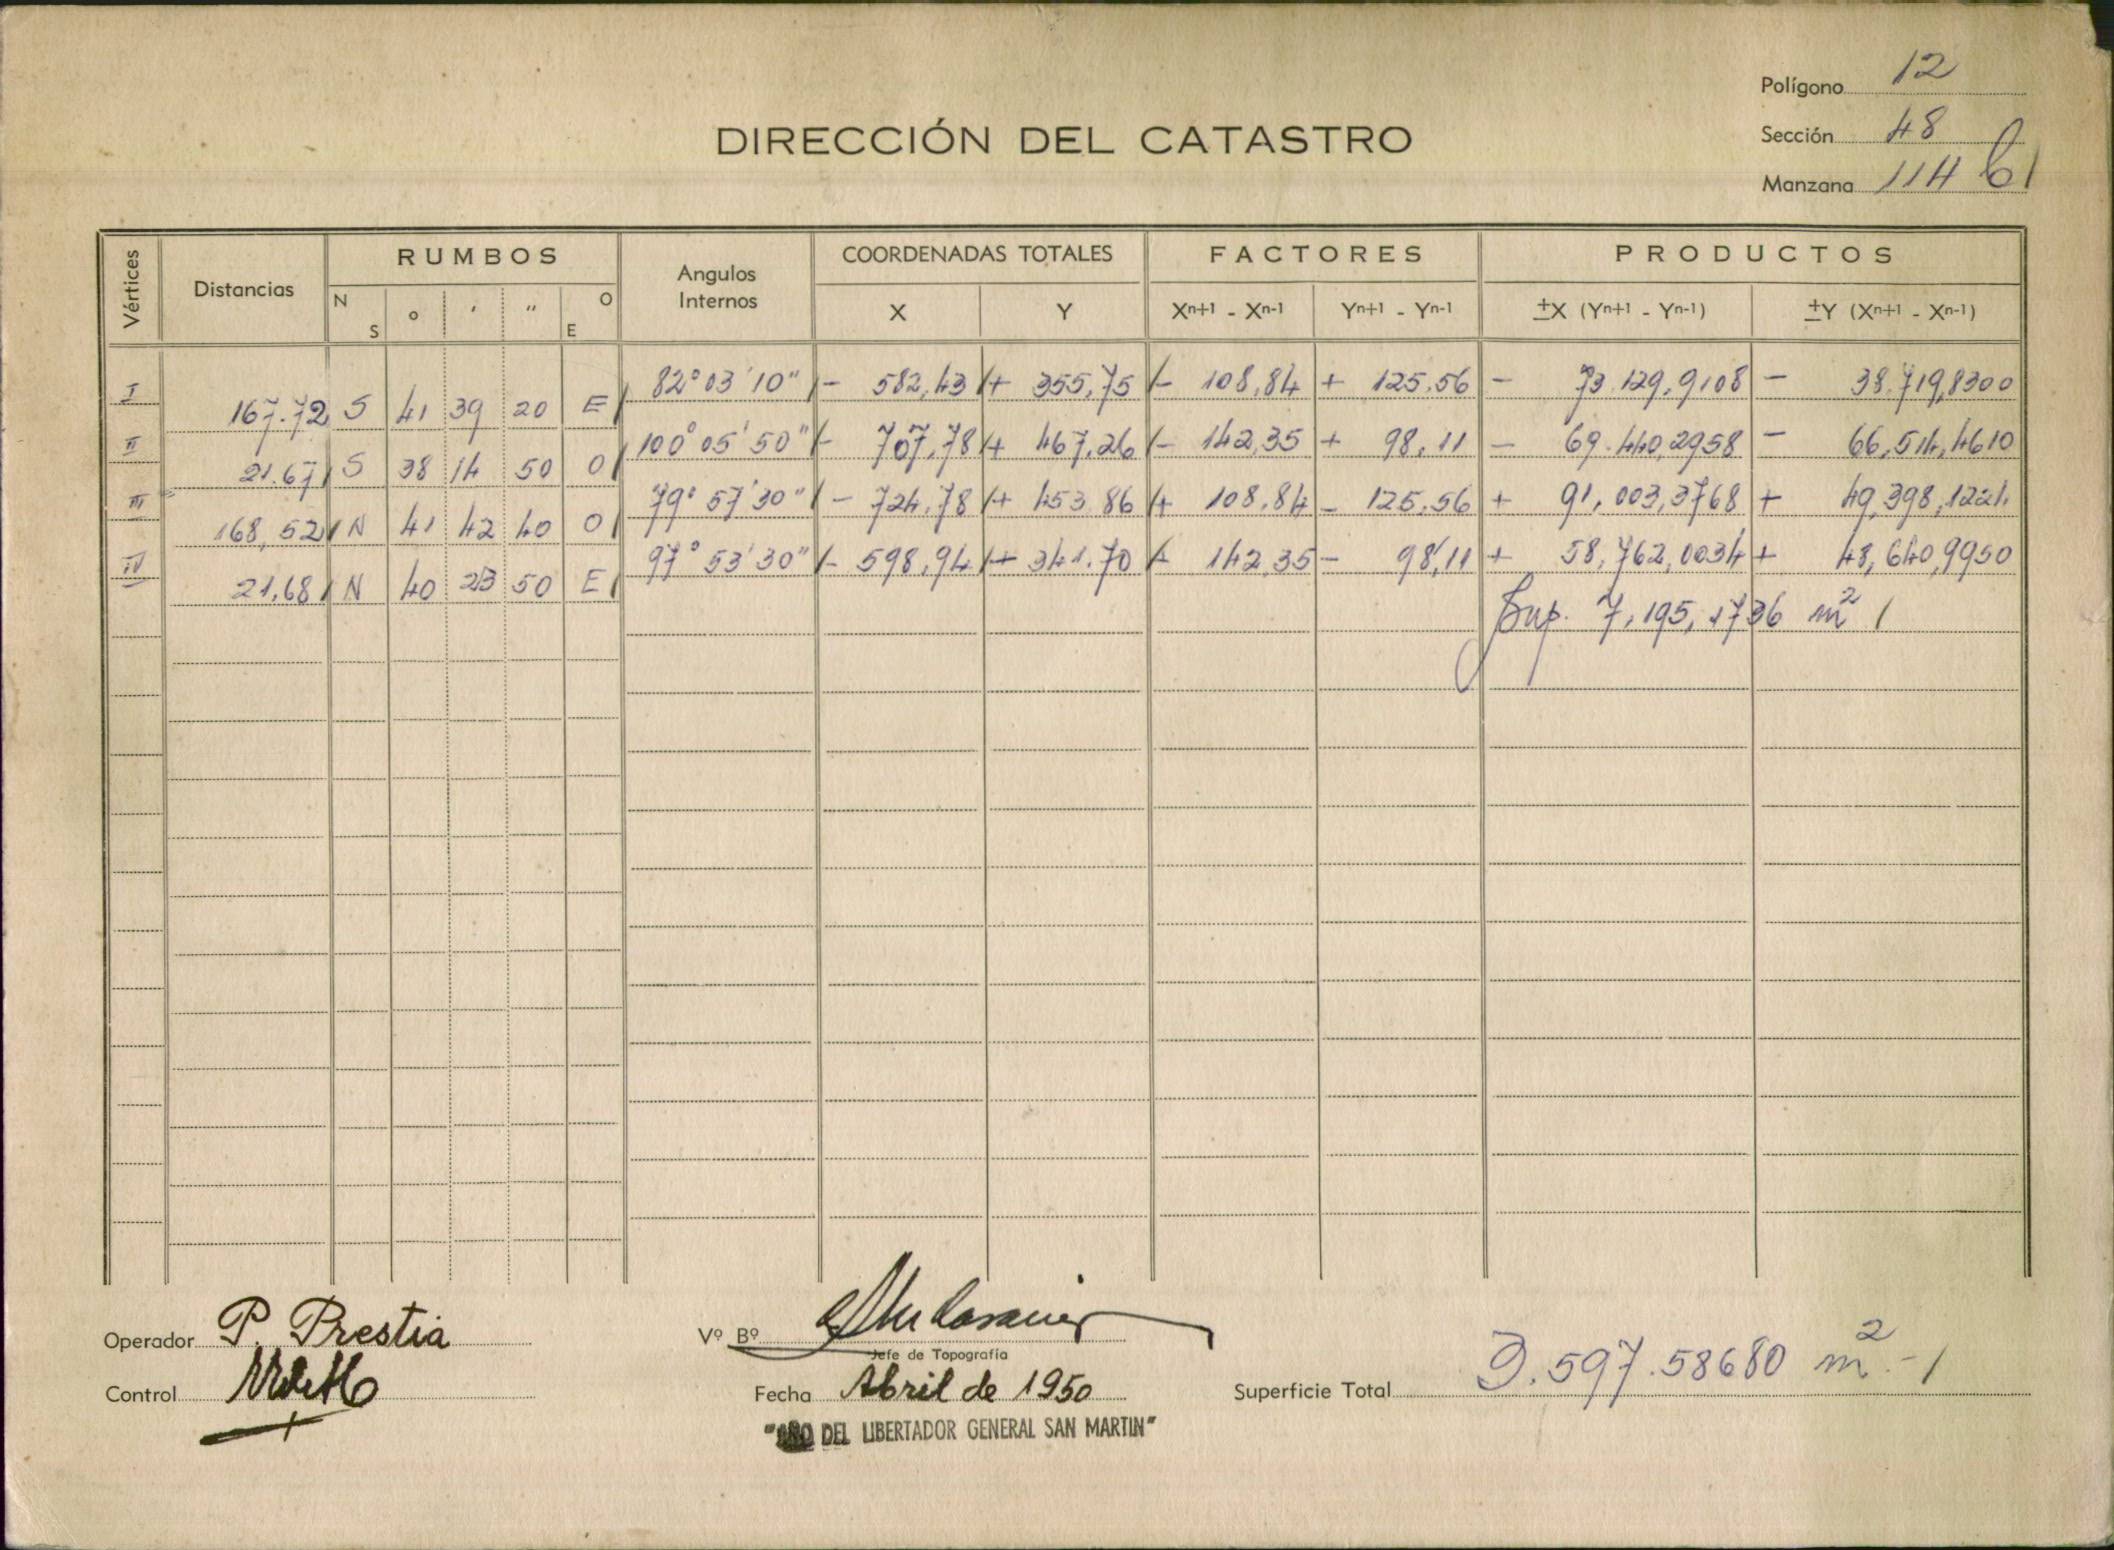 Polígono 12
DIRECCIÓN DEL CATASTRO
Sección 48
Manzana 114 b
Vértices Distancias RUMBOS Angulos Internos COORDENADAS TOTALES FACTORES PRODUCTOS
N S ° ' " O E X Y Xn+1 - Xn-1 Yn+1 - Yn-1 ±X (Yn+1 - Yn-1) ±Y (Xn+1 - Xn-1)
I 82° 03' 10" - 582,43 + 355,75 - 108,84 + 125,56 - 73.129,9108 - 38.719,8300
167.72 S 41 39 20 E
II 100° 05' 50" - 707,78 + 467,26 - 142,35 + 98,11 - 69.440,2958 - 66,514,4610
21.67 S 38 14 50 O
III 79° 57' 30" - 724,78 + 453.86 + 108,84 - 125,56 + 91,003,3768 + 49,398,1224
168,52 N 41 42 40 O
IV 97° 53' 30" - 598,94 + 341.70 + 142,35 - 98,11 + 58,762,0034 + 48,640,9950
21,68 N 40 23 50 E
Sup. 7,195,1736 m²
Operador P. Prestia
Vº Bº
Jefe de Topografía
Control
Fecha Abril de 1950
Superficie Total 3.597.58680 m².-
"AÑO DEL LIBERTADOR GENERAL SAN MARTIN"